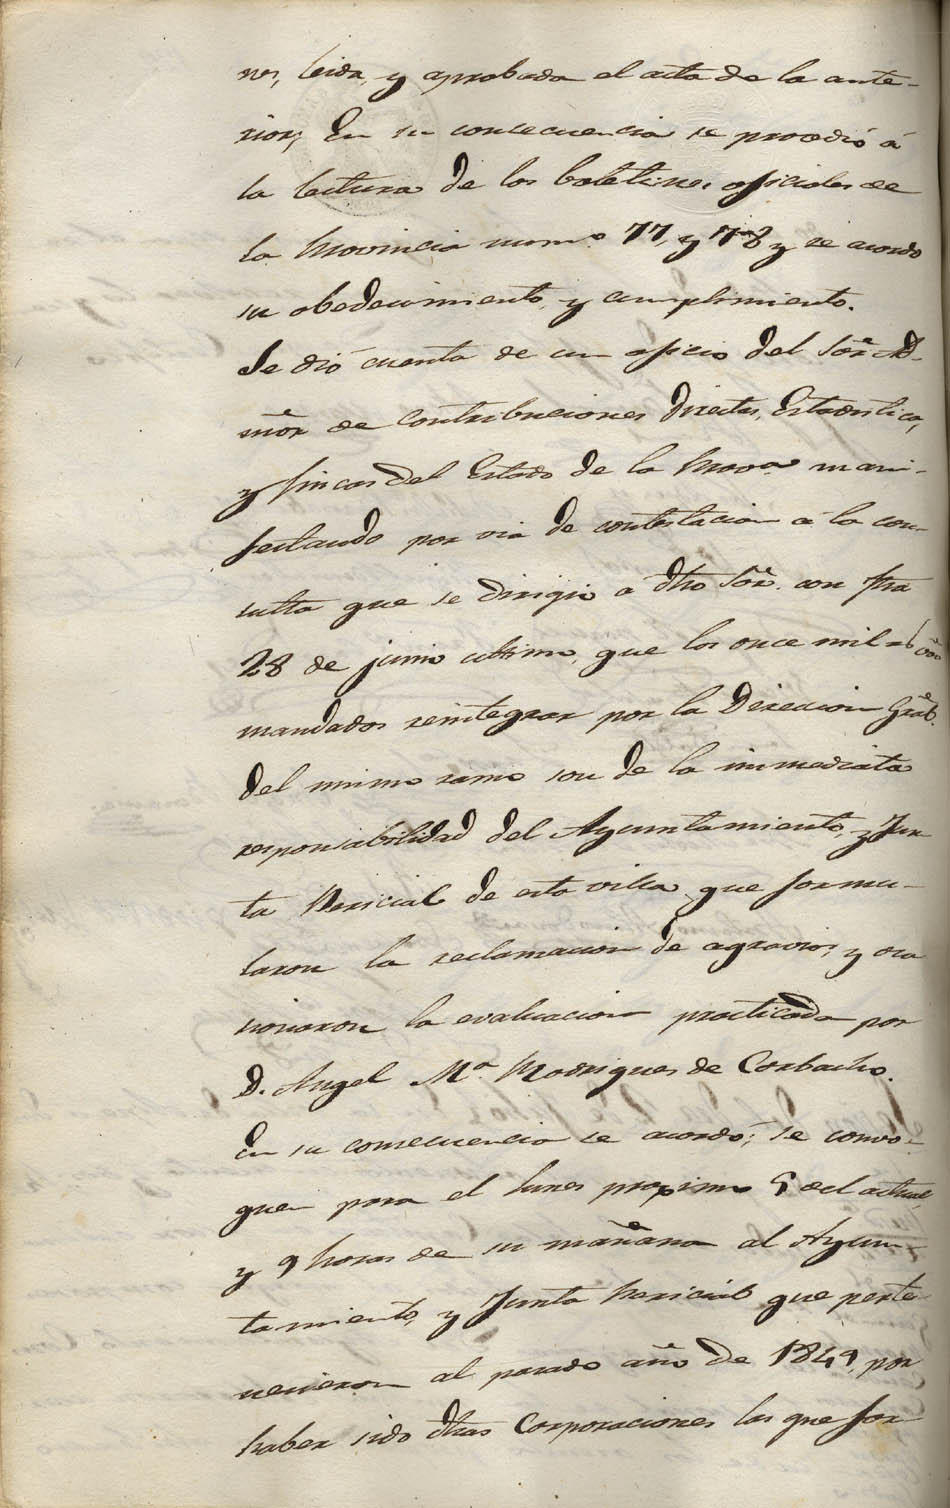 nes, leida, y aprobada el acta de la ante-
rior; En su consecuencia se procedió á
la lectura de los boletines oficiales de
la Provincia num.º 77, y 78 y se acordo
su obedecimiento, y cumplimiento.
Se dió cuenta de un oficio del Sõr. Ad-
mõr de Contribuciones Directas, Estadistica,
y fincas del Estado de la Prov.ª mani-
festando por via de contestacion á la con-
sulta que se dirigio a dho Sõr. con fha
28 de junio ultimo, que los once mil rs
mandados reintegrar por la Direccion Gral.
del mismo ramo son de la inmediata
responsabilidad del Ayuntamiento, y Jun
ta Pericial de esta villa que formu-
laron la reclamacion de agravios, y oca
sionaron la evaluacion practicada por
D. Angel M.ª Rodrigues de Corbacho.
En su consecuencia se acordó; se convo-
quen para el lunes proximo 9 del actual,
y 9 horas de su mañana al Ayun-
tamiento, y Junta Pericial que perte-
necieron al pasado año de 1849, por
haber sido dhas Corporaciones las que for